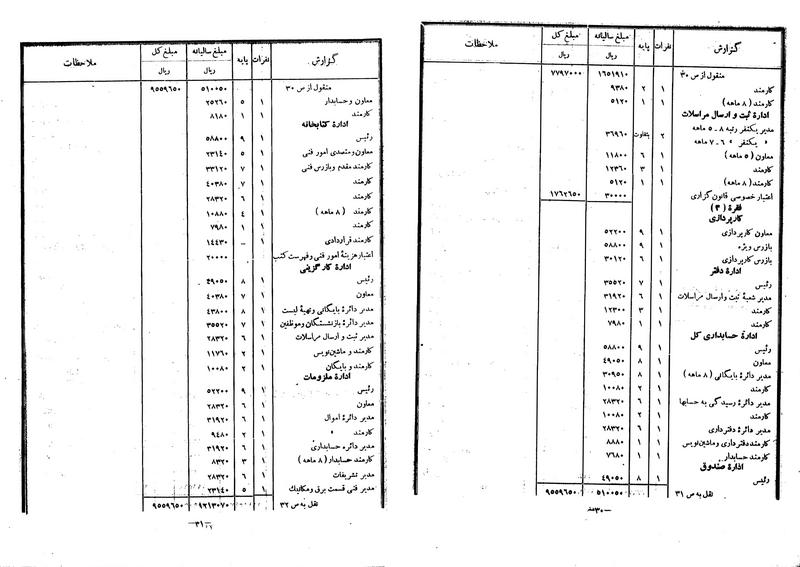 گزارش نفرات پایه مبلغ سالیانه مبلغ کل ملاحظات
ریال ریال
منقول از ص ۳۰ ۱۶۵۱۹۱۰ ۷۷۹۷۰۰۰
کارمند ۱ ۲ ۹۳۸۰
کارمند (۸ ماهه) ۱ ۱ ۵۱۲۰
ادارهٔ ثبت و ارسال مراسلات
مدیر یکنفر رتبه ۸ ـ ۵ ماهه
» یکنفر » ۶ ـ ۷ ماهه ۲ بتفاوت ۳۶۹۶۰
معاون (۵ ماهه) ۱ ۶ ۱۱۸۰۰
کارمند ۱ ۳ ۱۲۳۶۰
کارمند (۸ ماهه) ۱ ۱ ۵۱۲۰
اعتبار خصوصی قانون گزاری ۳۰۰۰۰ ۱۷۶۲۶۵۰
فقرهٔ (۳)
کارپردازی
معاون کارپردازی ۱ ۹ ۵۲۲۰۰
بازرس ویژه ۱ ۹ ۵۸۸۰۰
بازرس کارپردازی ۱ ۶ ۳۰۱۲۰
ادارهٔ دفتر
رئیس ۱ ۷ ۳۵۵۲۰
مدیر شعبهٔ ثبت وارسال مراسلات ۱ ۶ ۳۱۹۲۰
کارمند ۱ ۳ ۱۲۳۰۰
کارمند ۱ ۱ ۷۹۸۰
ادارهٔ حسابداری کل
رئیس ۱ ۹ ۵۸۸۰۰
معاون ۱ ۸ ۴۹۰۵۰
مدیر دائرهٔ بایگانی (۸ ماهه) ۱ ۸ ۳۰۹۵۰
کارمند ۱ ۲ ۱۰۰۸۰
مدیر دائرهٔ رسیدگی به حسابها ۱ ۶ ۲۸۳۲۰
کارمند ۱ ۲ ۱۰۰۸۰
مدیر دائرهٔ دفترداری ۱ ۶ ۲۸۳۲۰
کارمند دفترداری و ماشین‌نویس ۱ ۱ ۸۸۸۰
کارمند حسابدار ۱ ۱ ۷۶۸۰
ادارهٔ صندوق
رئیس ۱ ۸ ۴۹۰۵۰
نقل به ص ۳۱ ۵۱۰۰۵۰ ۹۵۵۹۶۵۰
ـ۳۰ـ
گزارش نفرات پایه مبلغ سالیانه مبلغ کل ملاحظات
ریال ریال
منقول از ص ۳۰ ۵۱۰۰۵۰ ۹۵۵۹۶۵۰
معاون و حسابدار ۱ ۵ ۲۵۲۶۰
کارمند ۱ ۱ ۸۱۸۰
ادارهٔ کتابخانه
رئیس ۱ ۹ ۵۸۸۰۰
معاون ومتصدی امور فنی ۱ ۵ ۲۳۱۴۰
کارمند مقدم و بازرس فنی ۱ ۷ ۳۳۱۲۰
کارمند ۱ ۷ ۴۰۳۸۰
کارمند ۱ ۶ ۲۸۳۲۰
کارمند (۸ ماهه) ۱ ۴ ۱۰۸۸۰
کارمند ۱ ۱ ۷۹۸۰
کارمند قراردادی ۱ ـ ۱۴۴۳۰
اعتبار هزینهٔ امور فنی و فهرست کتب ۲۰۰۰۰
ادارهٔ کارگزینی
رئیس ۱ ۸ ۴۹۰۵۰
معاون ۱ ۷ ۴۰۳۸۰
مدیر دائرهٔ بایگانی وتهیهٔ لیست ۱ ۸ ۴۳۸۰۰
مدیر دائرهٔ بازنشستگان وموظفین ۱ ۷ ۳۵۵۲۰
مدیر ثبت و ارسال مراسلات ۱ ۶ ۲۸۳۲۰
کارمند و ماشین‌نویس ۱ ۲ ۱۱۷۶۰
کارمند و بایگان ۱ ۲ ۱۰۰۸۰
ادارهٔ ملزومات
رئیس ۱ ۹ ۵۲۲۰۰
معاون ۱ ۶ ۲۸۳۲۰
مدیر دائرهٔ اموال ۱ ۶ ۳۱۹۲۰
کارمند » ۱ ۲ ۹۴۸۰
مدیر دائرهٔ حسابداری ۱ ۶ ۳۱۹۲۰
کارمند حسابدار (۸ ماهه) ۱ ۳ ۸۳۲۰
مدیر تشریفات ۱ ۶ ۲۸۳۲۰
مدیر فنی قسمت برق ومکانیك ۱ ۵ ۲۳۱۴۰
نقل به ص ۳۲ ۱۲۱۳۰۷۰ ۹۵۵۹۶۵۰
ـ۳۱ـ